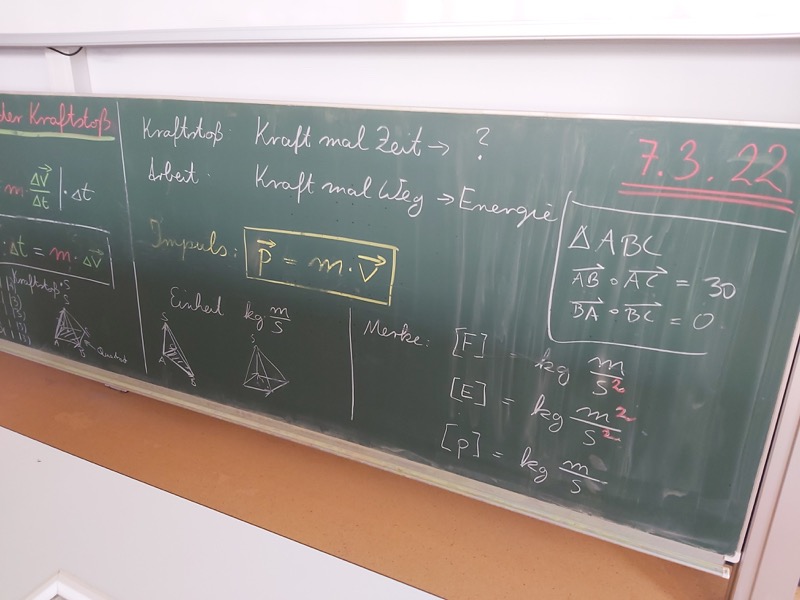 der Kraftstoß
m Δv/Δt | · Δt
· Δt = m · Δv
Kraftstoß
S
S
A
B
Quadrat
Kraftstoß: Kraft mal Zeit → ?
Arbeit: Kraft mal Weg → Energie
Impuls: p = m · v
Einheit kg m/s
S
A
B
S
Merke: [F] = kg m/s²
[E] = kg m²/s²
[p] = kg m/s
7.3.22
Δ ABC
AB ∘ AC = 30
BA ∘ BC = 0